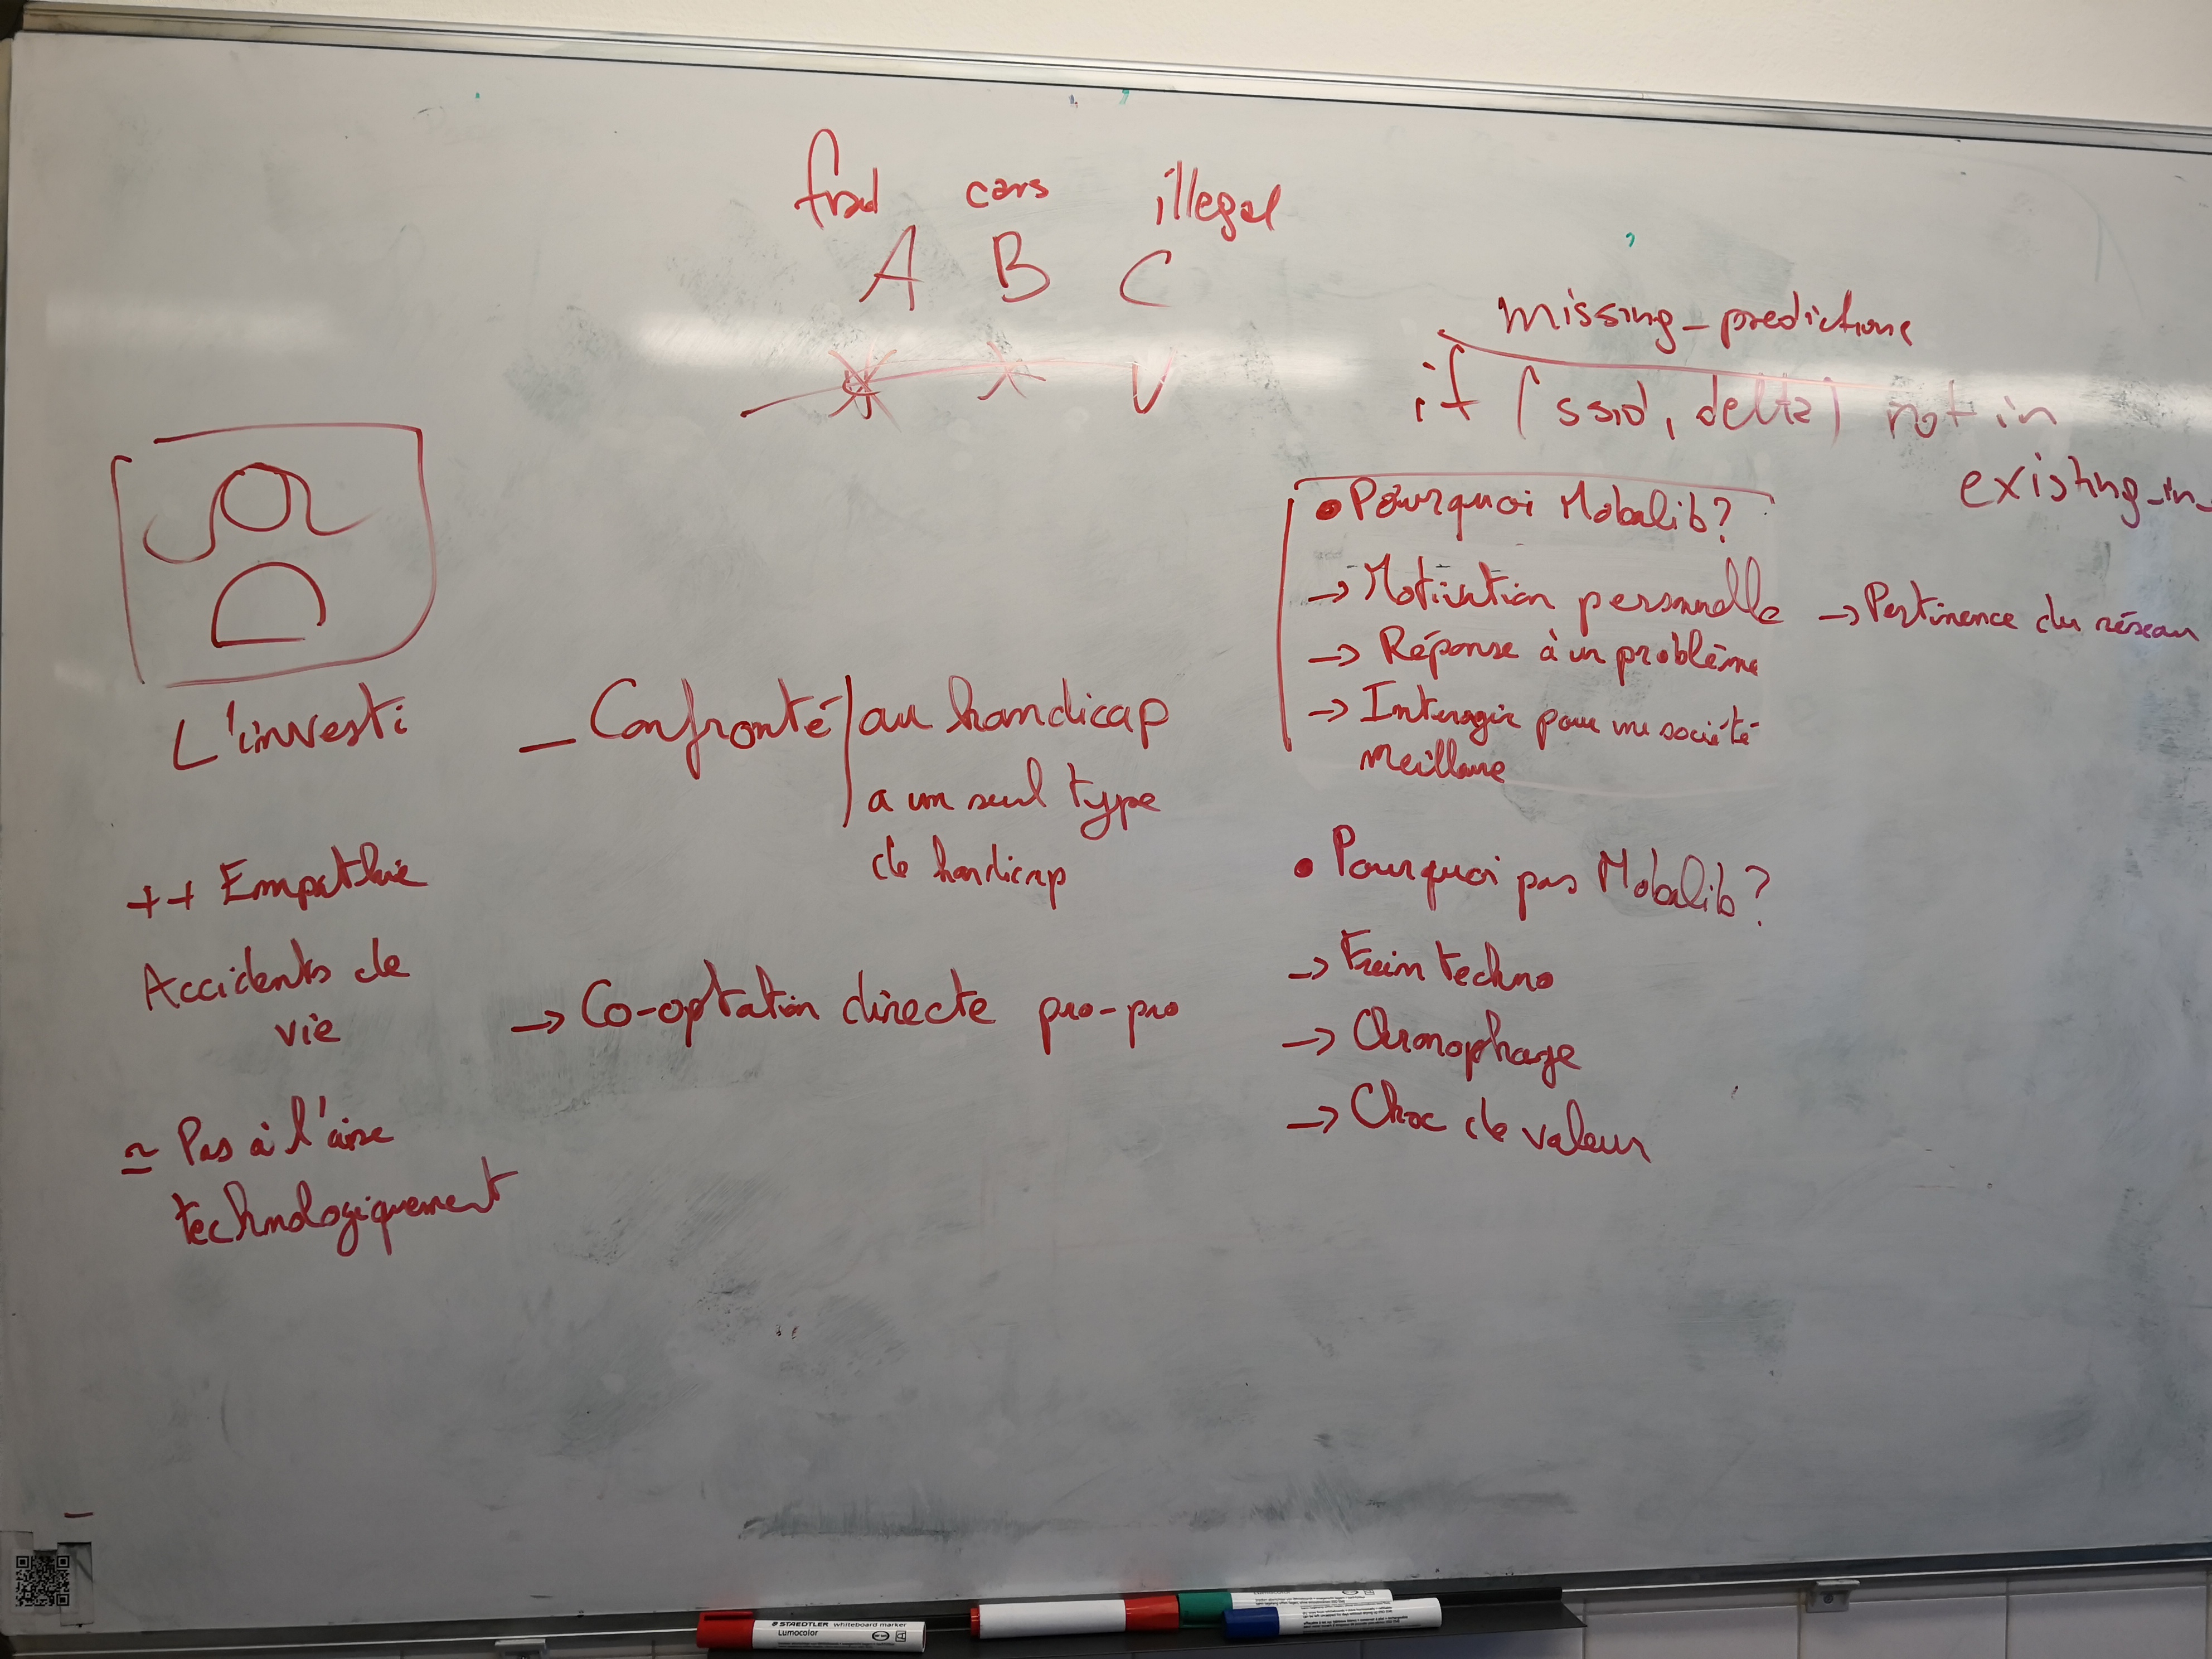 frod cars illegal
A B C
missing_predictions
if (ssid, delta) not in
existing_in_
L'investi
++ Empathie
Accidents de
vie
≃ Pas à l'aise
technologiquement
_ Confronté | au handicap
a un seul type
de handicap
→ Co-optation directe pro-pro
• Pourquoi Mobalib?
→ Motivation personnelle → Pertinence du réseau
→ Réponse à un problème
→ Interagir pour une société
meilleure
• Pourquoi pas Mobalib?
→ Frein techno
→ Chronophage
→ Choc de valeur
STAEDTLER whiteboard marker
Lumocolor